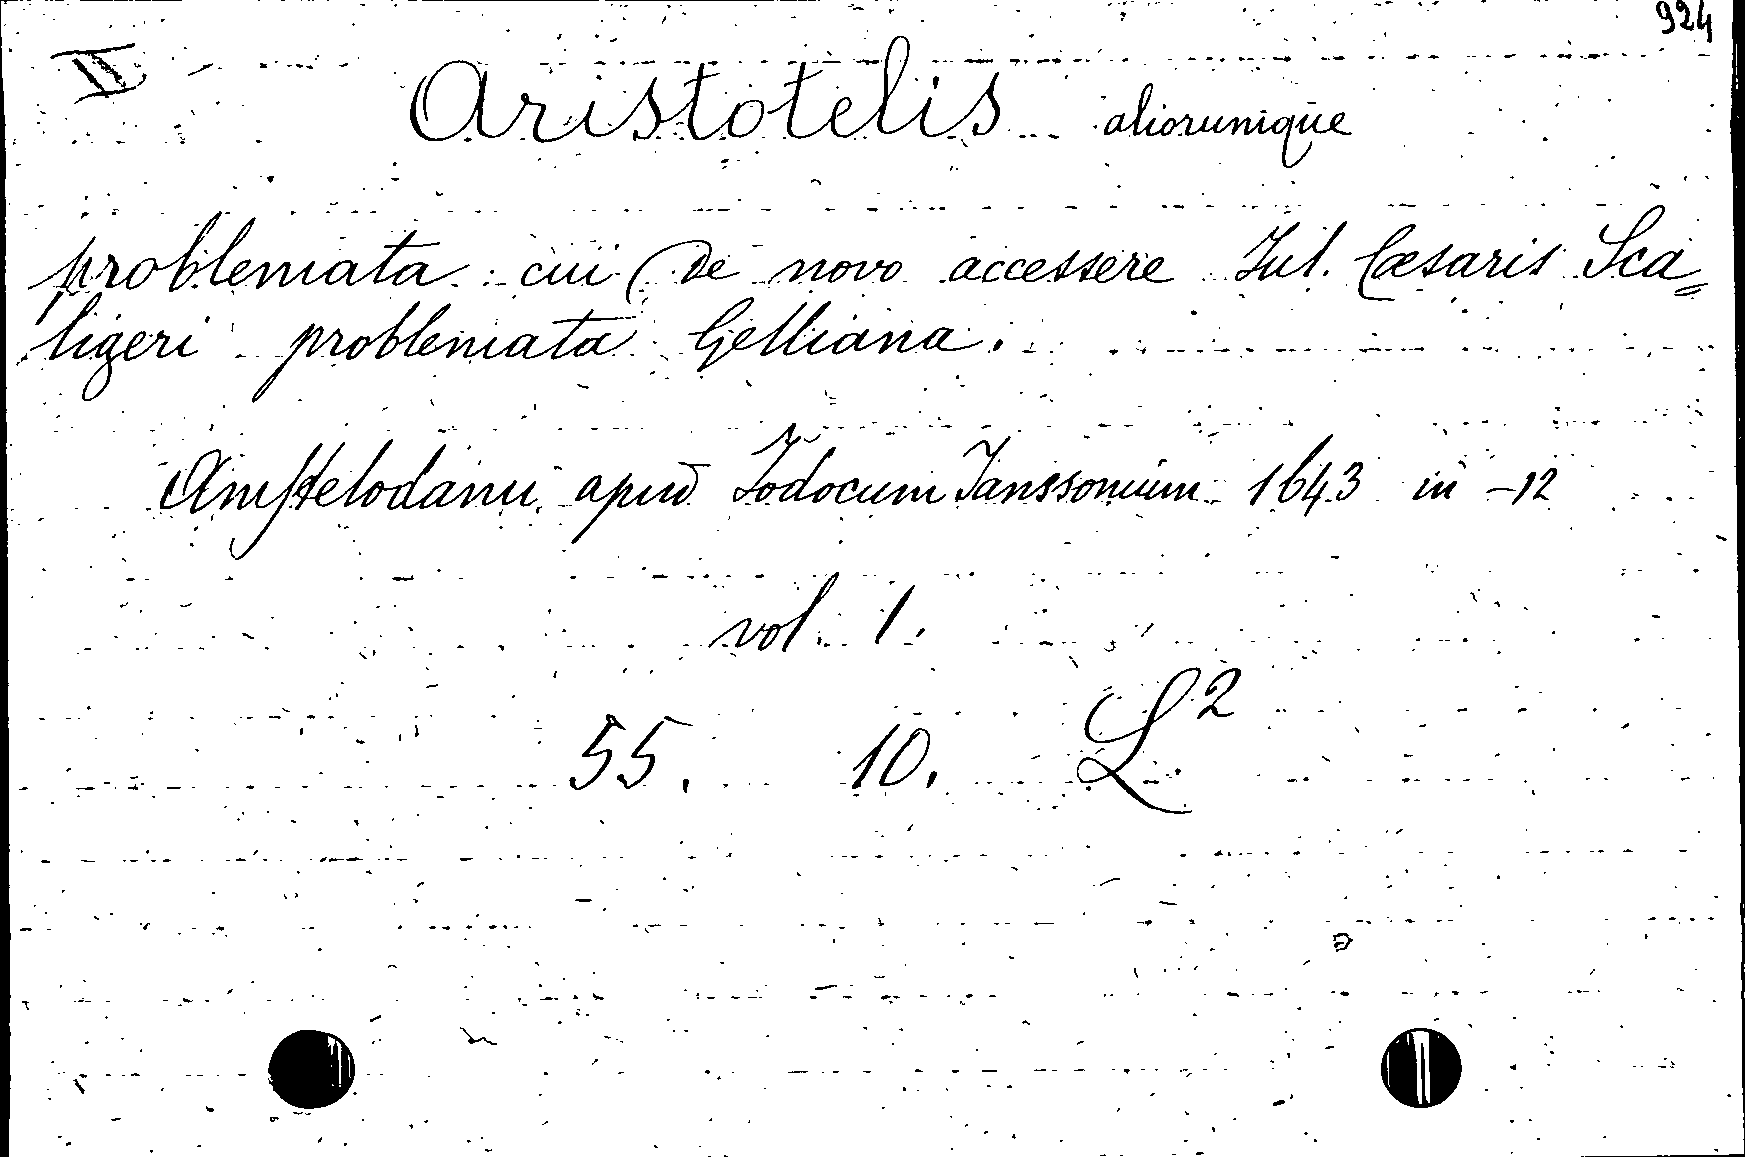 924
II
Aristotelis aliorumque
problemata cui de novo accessere Jul. Cæsaris Sca=
ligeri problemata Gelliana.
Amstelodami apud Jodocum Janssonium 1643 in -12
vol. 1.
55. 10. L²